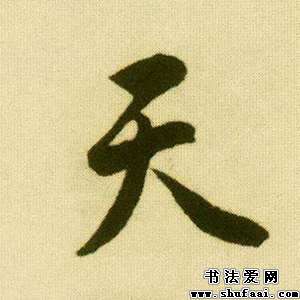 天
书法爱网
www.shufaai.com